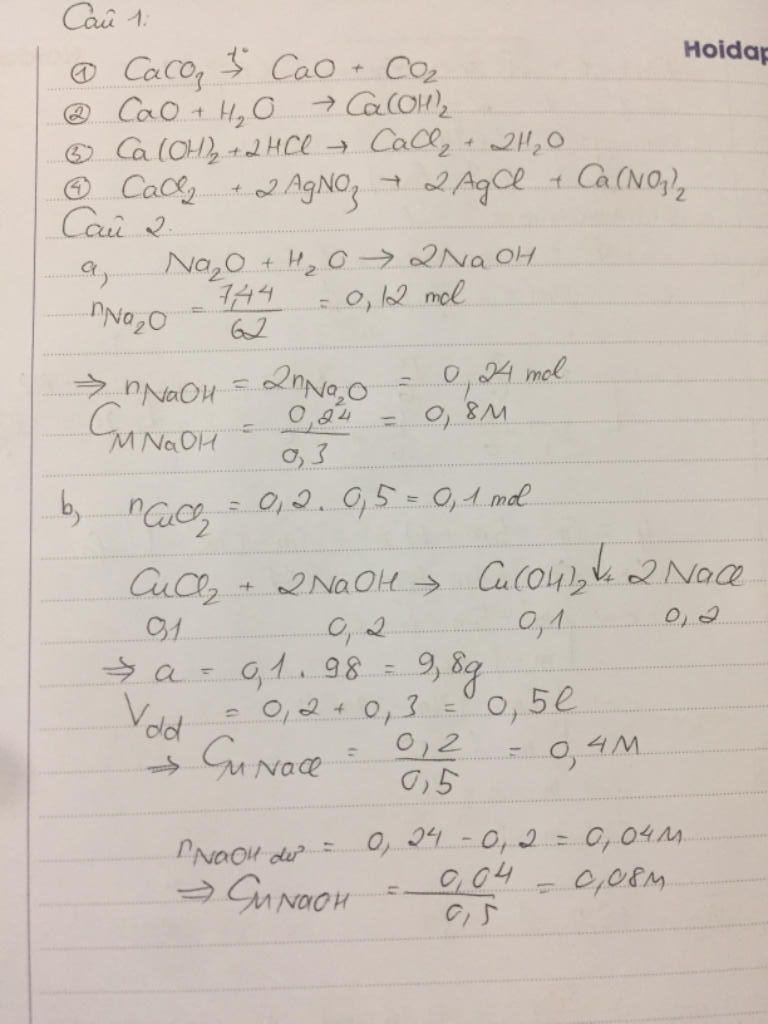 Câu 1:
Hoidap
① CaCO₃ →t° CaO + CO₂
② CaO + H₂O → Ca(OH)₂
③ Ca(OH)₂ + 2HCl → CaCl₂ + 2H₂O
④ CaCl₂ + 2AgNO₃ → 2AgCl + Ca(NO₃)₂
Câu 2.
a, Na₂O + H₂O → 2NaOH
nNa₂O = 7,44/62 = 0,12 mol
⇒ nNaOH = 2nNa₂O = 0,24 mol
CM NaOH = 0,24/0,3 = 0,8M
b, nCuCl₂ = 0,2 . 0,5 = 0,1 mol
CuCl₂ + 2NaOH → Cu(OH)₂↓ + 2NaCl
0,1 0,2 0,1 0,2
⇒ a = 0,1 . 98 = 9,8g
Vdd = 0,2 + 0,3 = 0,5l
⇒ CM NaCl = 0,2/0,5 = 0,4M
nNaOH dư = 0,24 - 0,2 = 0,04M
⇒ CM NaOH = 0,04/0,5 = 0,08M